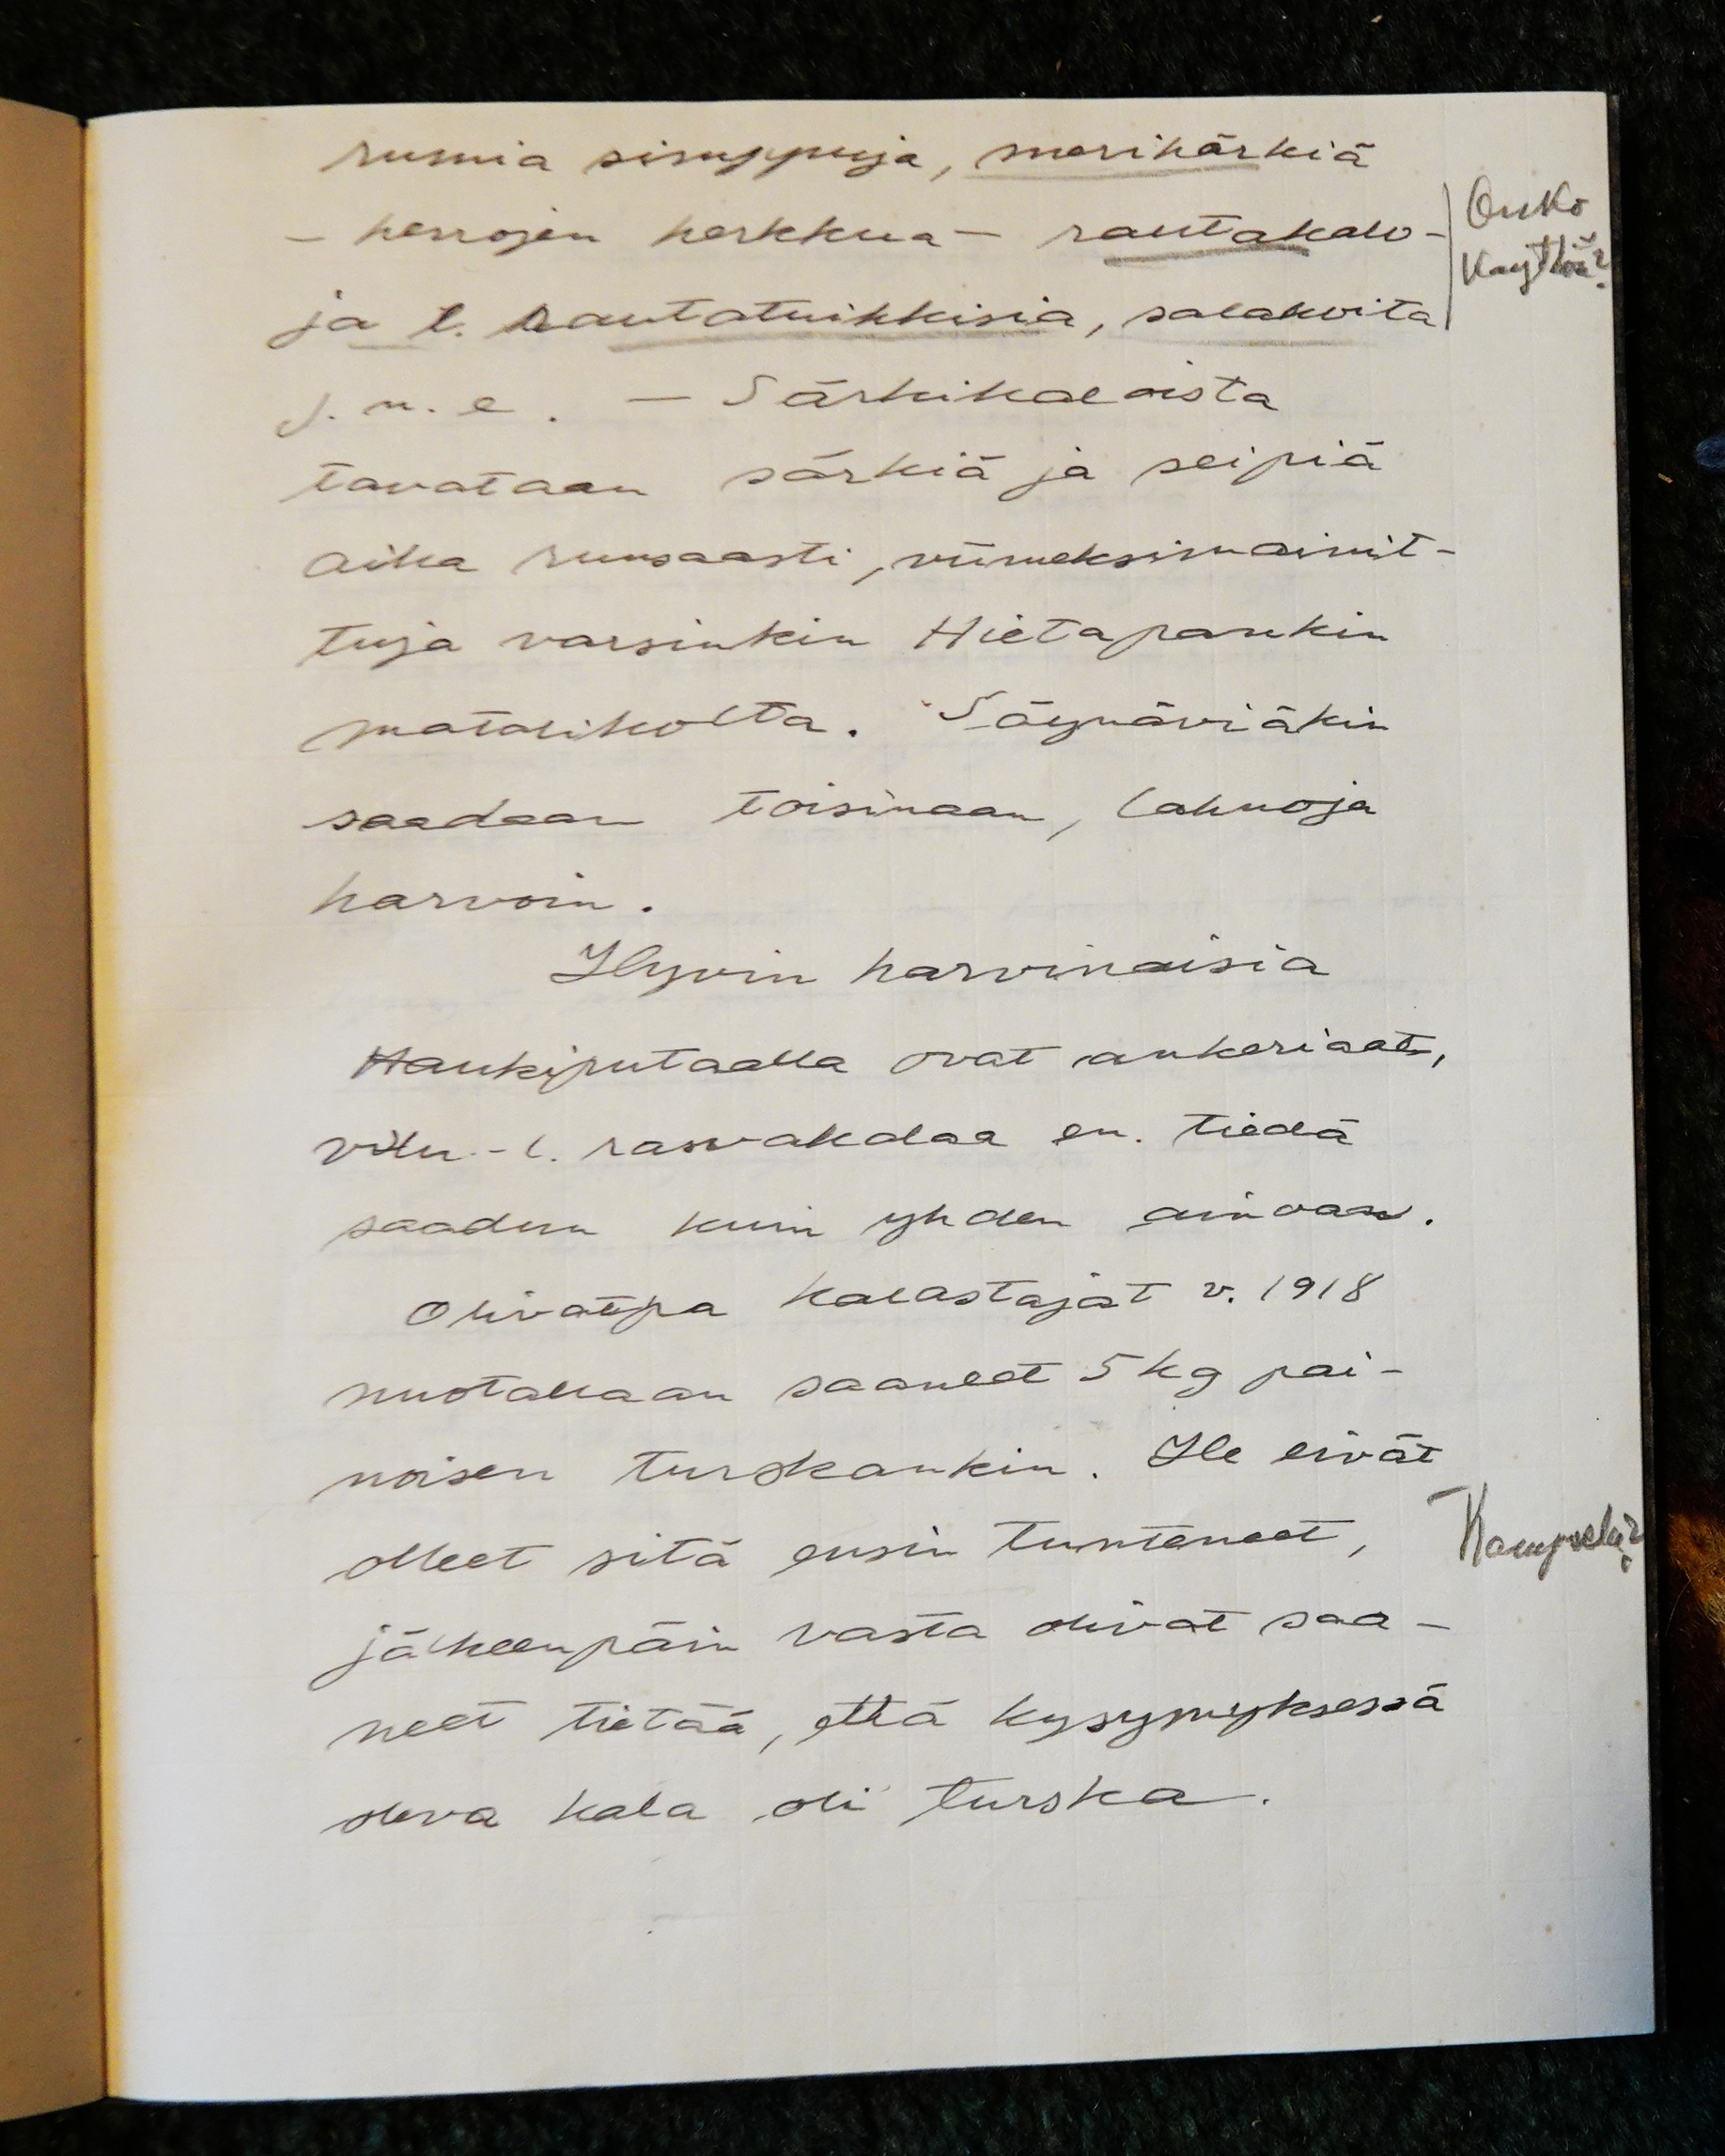 rumia simppuja, merihärkiä
– herrojen herkkua – rautakalo-
ja l. rautatuikkisia, salakoita
Onko
käyttöä?
j. n. e. – Särkikaloista
tavataan särkiä ja seipiä
aika runsaasti, viimeksimainit-
tuja varsinkin Hietapankin
matalikolta. Säynäviäkin
saadaan toisinaan, lahnoja
harvoin.
Hyvin harvinaisia
Haukiputaalla ovat ankeriaat,
l. rasvakalaa en. tiedä
saadun kuin yhden ainoan.
Olivatpa kalastajat v. 1918
nuotallaan saaneet 5 kg pai-
noisen turskankin. He eivät
olleet sitä ensin tunteneet,
Kampela?
jälkeenpäin vasta olivat saa-
neet tietää, että kysymyksessä
oleva kala oli turska.